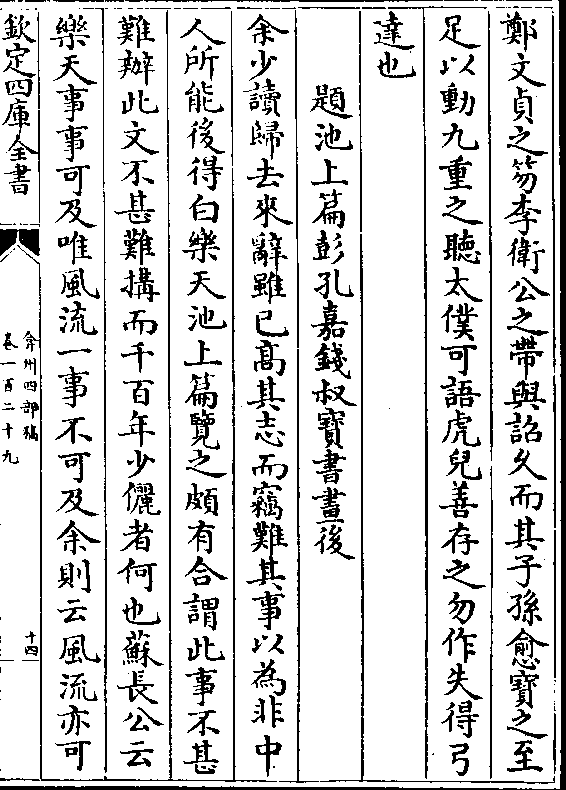 鄭文貞之笏李衛公之帶與詔久而其子孫愈寶之至
足以動九重之聽太僕可語虎兒善存之勿作失得弓
達也
題池上篇彭孔嘉錢叔寶書畫後
余少讀歸去來辭雖已高其志而竊難其事以為非中
人所能後得白樂天池上篇覽之頗有合謂此事不甚
難辦此文不甚難搆而千百年少儷者何也蘇長公云
樂天事事可及唯風流一事不可及余則云風流亦可
欽定四庫全書
弇州四部稿
卷一百二十九
十四